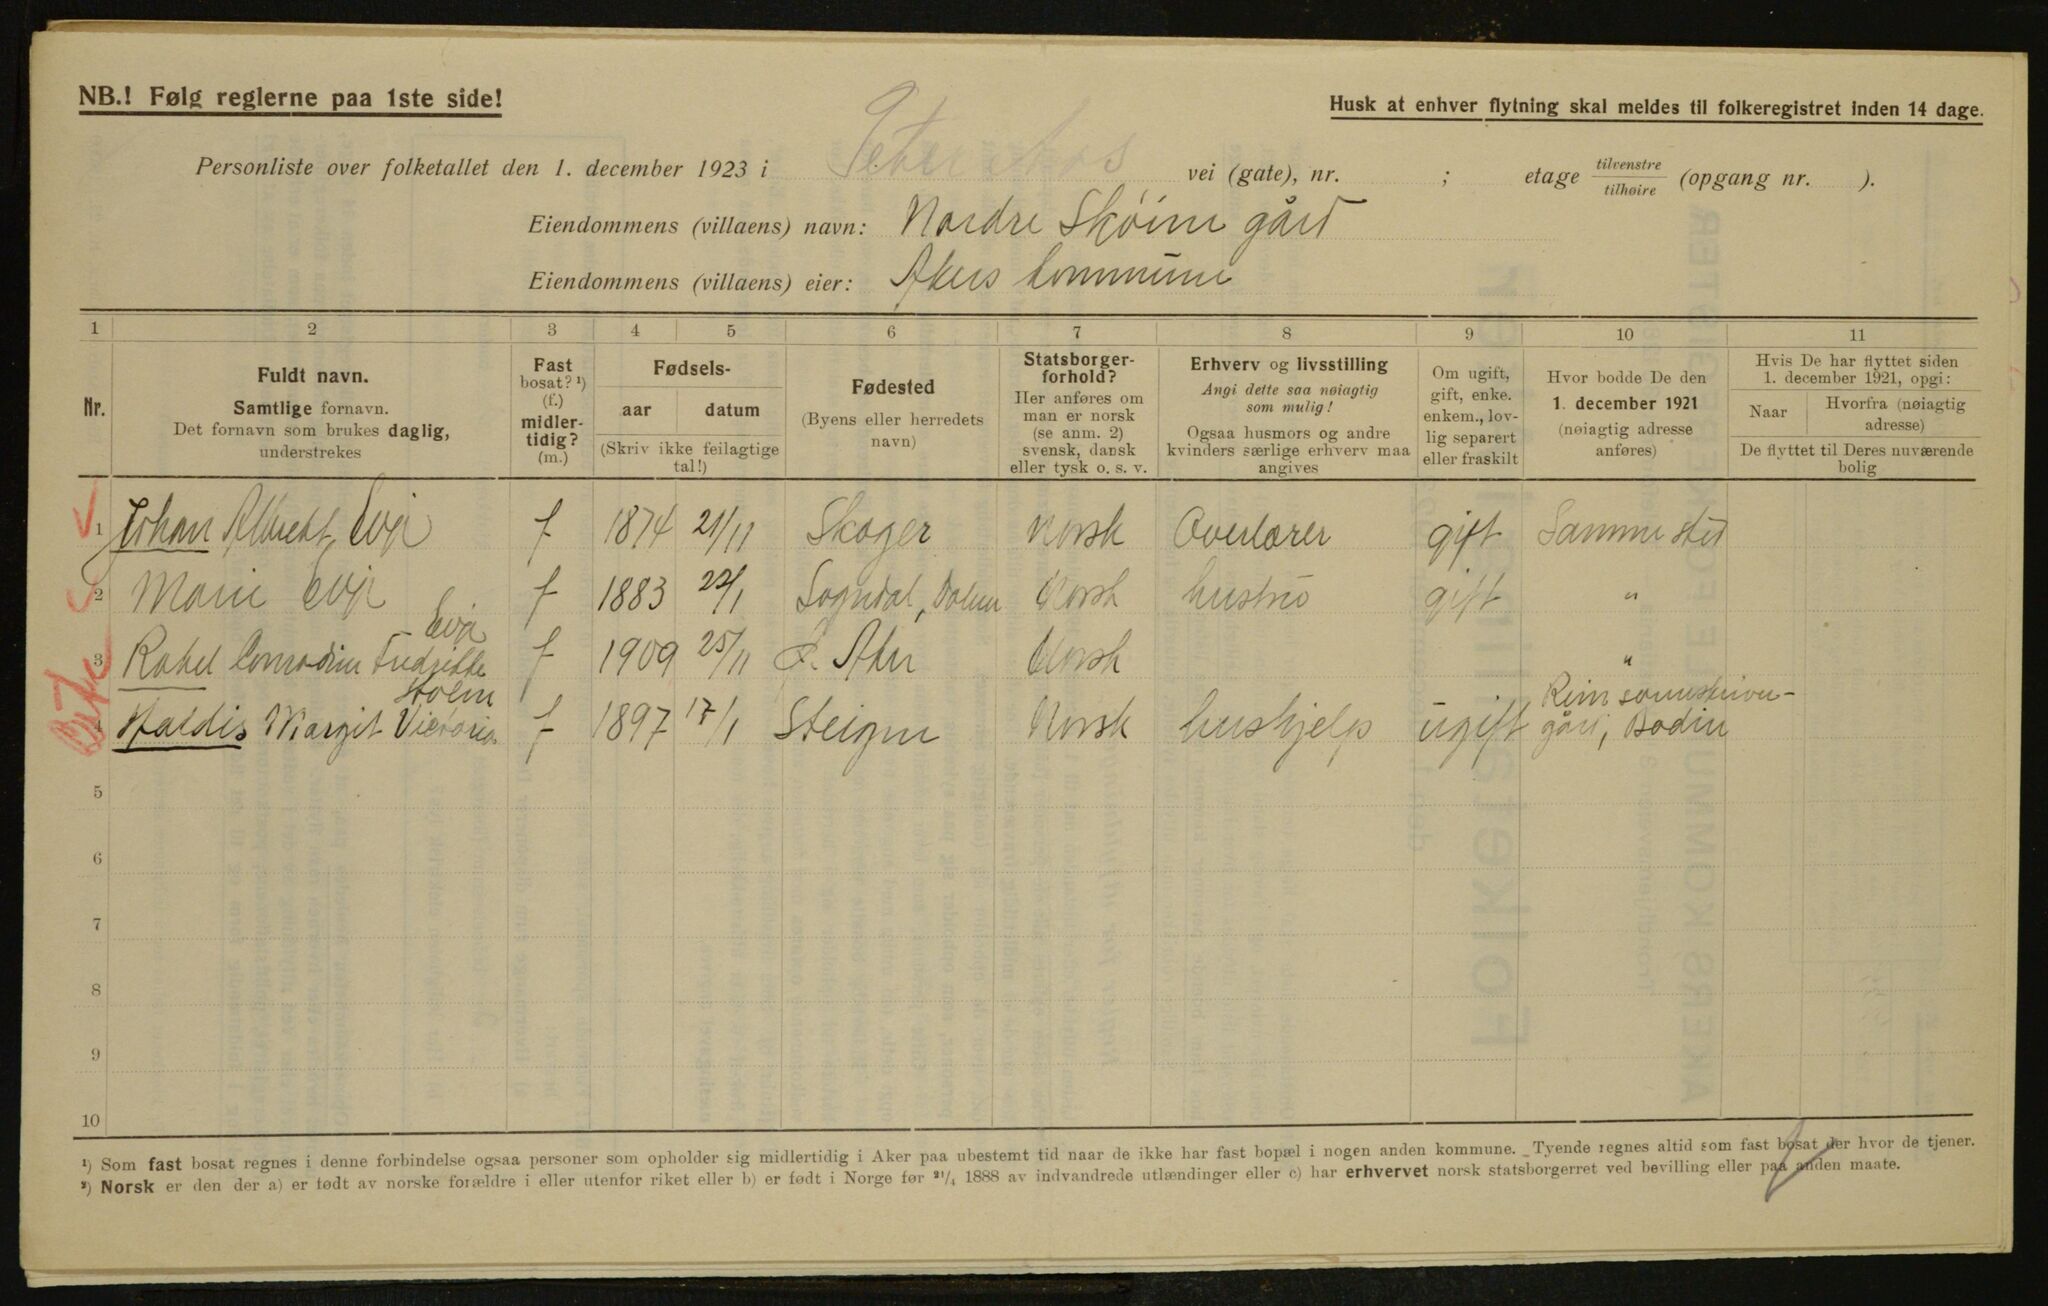 NB.! Følg reglerne paa 1ste side!
Husk at enhver flytning skal meldes til folkeregistret inden 14 dage.
Personliste over folketallet den 1. december 1923 i vei (gate), nr. ; etage tilvenstre/tilhøire (opgang nr. ).
Eiendommens (villaens) navn: Nordre Skøien gård
Eiendommens (villaens) eier: Akers kommune
1 2 3 4 5 6 7 8 9 10 11
Nr.
Fuldt navn.
Samtlige fornavn.
Det fornavn som brukes daglig,
understrekes
Fast
bosat? ¹)
(f.)
midler-
tidig?
(m.)
Fødsels-
aar datum
(Skriv ikke feilagtige
tal!)
Fødested
(Byens eller herredets
navn)
Statsborger-
forhold?
Her anføres om
man er norsk
(se anm. 2)
svensk, dansk
eller tysk o. s. v.
Erhverv og livsstilling
Angi dette saa nøiagtig
som mulig!
Ogsaa husmors og andre
kvinders særlige erhverv maa
angives
Om ugift,
gift, enke.
enkem., lov-
lig separert
eller fraskilt
Hvor bodde De den
1. december 1921
(nøiagtig adresse
anføres)
Hvis De har flyttet siden
1. december 1921, opgi:
Naar
Hvorfra (nøiagtig
adresse)
De flyttet til Deres nuværende
bolig
1 Johan Albrecht Evje f 1874 21/11 Skoger Norsk Overlærer gift Samme sted
2 Marie Evje f 1883 22/1 Sogndal, Dalene Norsk hustru gift "
Evje
3 Rakel Conradine Fredrikke f 1909 25/11 Aker Norsk "
Holm Reins sorenskriver-
4 Haldis Margit Victoria f 1897 17/1 Steigen Norsk hushjelp ugift gård, Bodin
5
6
7
8
9
10
¹) Som fast bosat regnes i denne forbindelse ogsaa personer som opholder sig midlertidig i Aker paa ubestemt tid naar de ikke har fast bopæl i nogen anden kommune. Tyende regnes altid som fast bosat der hvor de tjener.
²) Norsk er den der a) er født av norske forældre i eller utenfor riket eller b) er født i Norge før 21/4 1888 av indvandrede utlændinger eller c) har erhvervet norsk statsborgerret ved bevilling eller paa anden maate.